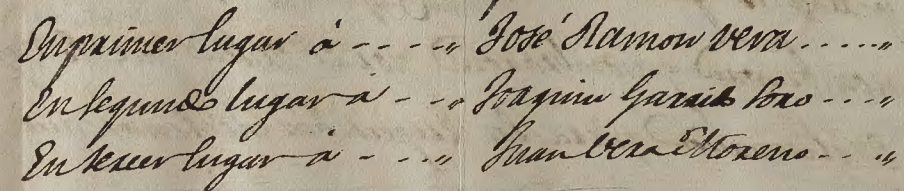 En primer lugar á - - - -" José Ramon Vera . . . . . "
En segundo lugar á - - " Joaquin Garrido Toro - - - "
En tercer lugar á - - - " Juan Vera Moreno - - - "